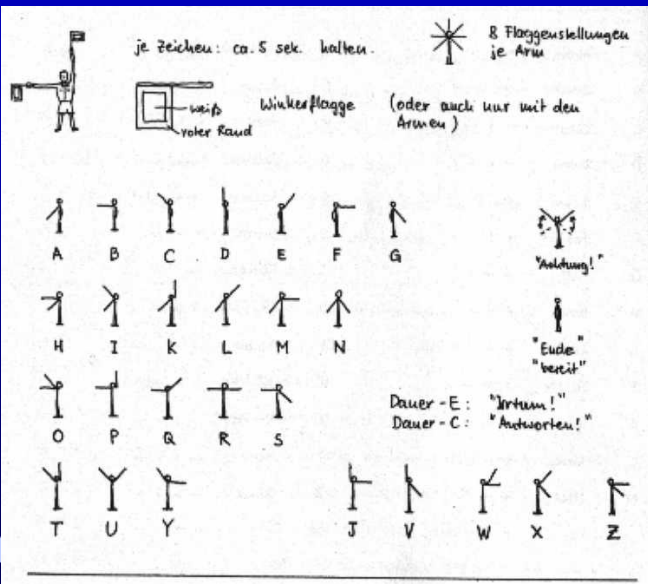 je Zeichen: ca. 5 sek. halten.
8 Flaggenstellungen
je Arm
weiß
roter Rand
Winkerflagge
(oder auch nur mit den
Armen)
A B C D E F G
"Achtung!"
H I K L M N
"Ende"
"bereit"
O P Q R S
Dauer-E: "Irrtum!"
Dauer-C: "Antworten!"
T U Y J V W X Z